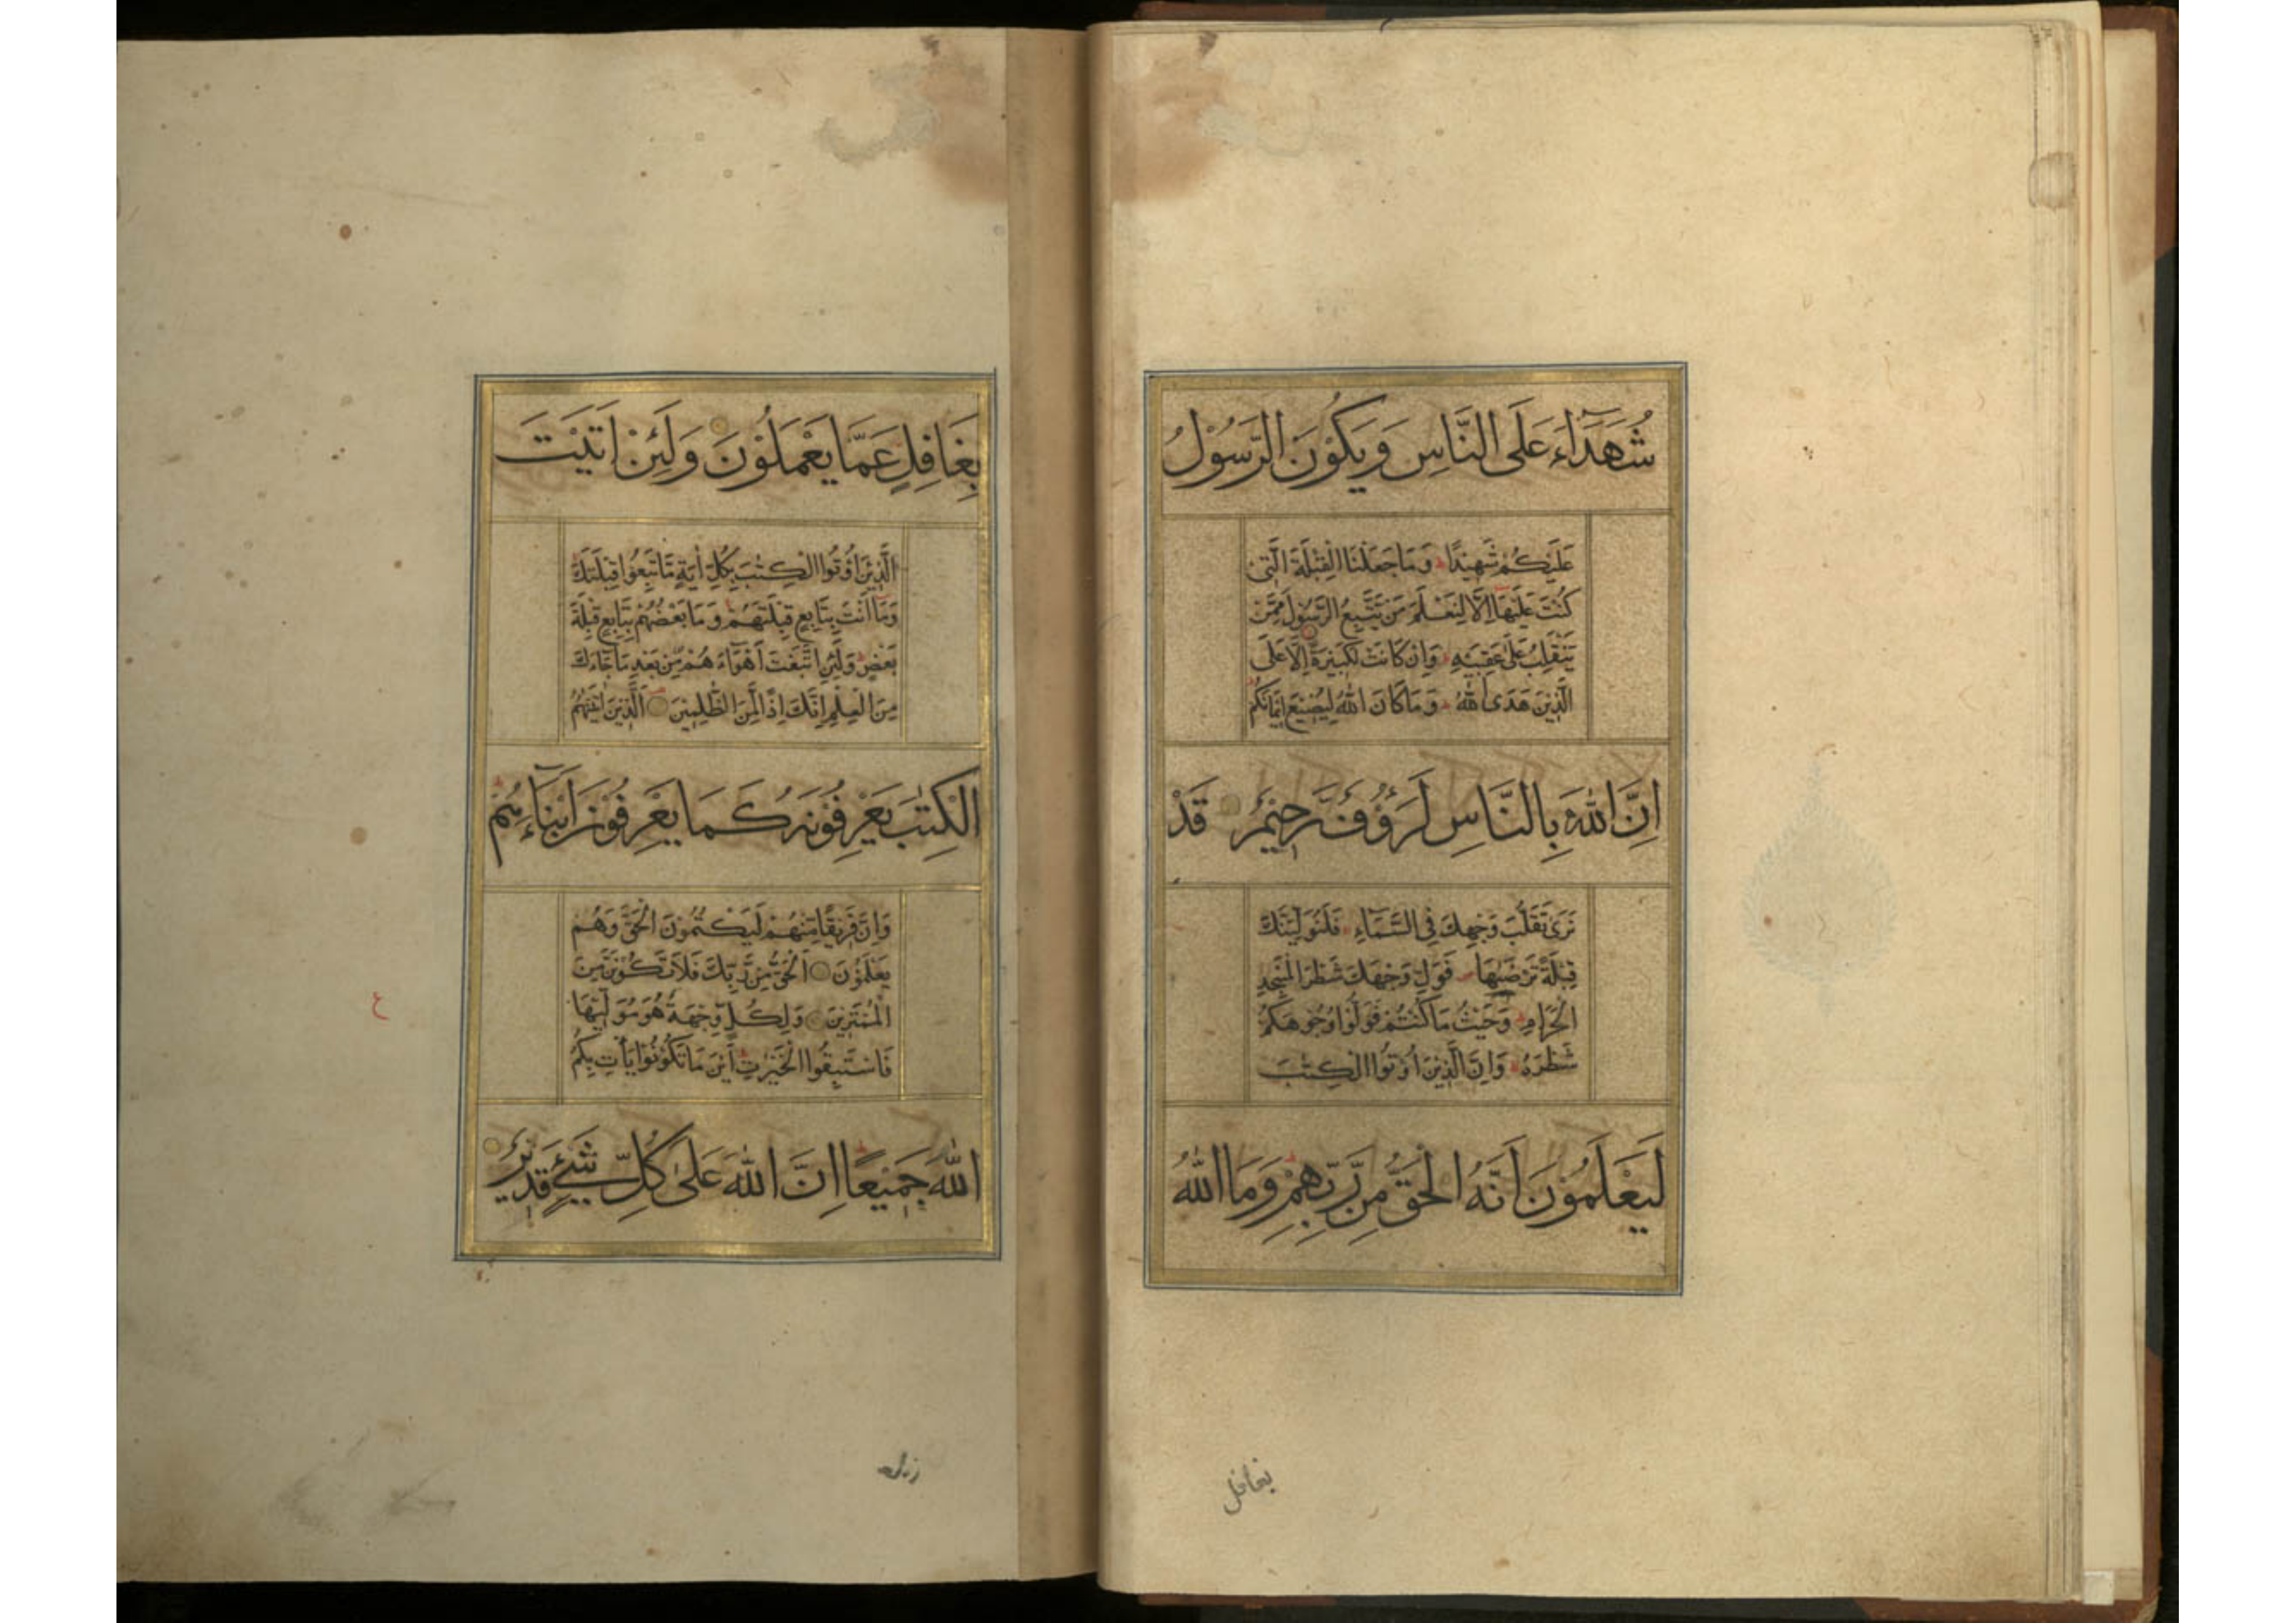 شُهَدَآءَ عَلَى النَّاسِ وَيَكُوْنَ الرَّسُوْلُ
عَلَيْكُمْ شَهِيْدًا ط وَمَا جَعَلْنَا الْقِبْلَةَ الَّتِيْ
كُنْتَ عَلَيْهَا اِلَّا لِنَعْلَمَ مَنْ يَتَّبِعُ الرَّسُوْلَ مِمَّنْ
يَنْقَلِبُ عَلٰى عَقِبَيْهِ ط وَاِنْ كَانَتْ لَكَبِيْرَةً اِلَّا عَلَى
الَّذِيْنَ هَدَى اللّٰهُ ط وَمَا كَانَ اللّٰهُ لِيُضِيْعَ اِيْمَانَكُمْ
اِنَّ اللّٰهَ بِالنَّاسِ لَرَؤُفٌ رَّحِيْمٌ قَدْ
نَرٰى تَقَلُّبَ وَجْهِكَ فِى السَّمَآءِ فَلَنُوَلِّيَنَّكَ
قِبْلَةً تَرْضٰىهَا فَوَلِّ وَجْهَكَ شَطْرَ الْمَسْجِدِ
الْحَرَامِ ط وَحَيْثُ مَا كُنْتُمْ فَوَلُّوْا وُجُوْهَكُمْ
شَطْرَهُ ط وَاِنَّ الَّذِيْنَ اُوْتُوا الْكِتٰبَ
لَيَعْلَمُوْنَ اَنَّهُ الْحَقُّ مِنْ رَّبِّهِمْ ط وَمَا اللّٰهُ
بغافل
بِغَافِلٍ عَمَّا يَعْمَلُوْنَ وَلَئِنْ اَتَيْتَ
الَّذِيْنَ اُوْتُوا الْكِتٰبَ بِكُلِّ اٰيَةٍ مَّا تَبِعُوْا قِبْلَتَكَ
وَمَا اَنْتَ بِتَابِعٍ قِبْلَتَهُمْ وَمَا بَعْضُهُمْ بِتَابِعٍ قِبْلَةَ
بَعْضٍ ط وَلَئِنِ اتَّبَعْتَ اَهْوَآءَهُمْ مِّنْ بَعْدِ مَا جَآءَكَ
مِنَ الْعِلْمِ اِنَّكَ اِذًا لَّمِنَ الظّٰلِمِيْنَ اَلَّذِيْنَ اٰتَيْنٰهُمُ
الْكِتٰبَ يَعْرِفُوْنَهُ كَمَا يَعْرِفُوْنَ اَبْنَآءَهُمْ ط
وَاِنَّ فَرِيْقًا مِّنْهُمْ لَيَكْتُمُوْنَ الْحَقَّ وَهُمْ
يَعْلَمُوْنَ اَلْحَقُّ مِنْ رَّبِّكَ فَلَا تَكُوْنَنَّ مِنَ
الْمُمْتَرِيْنَ وَلِكُلٍّ وِّجْهَةٌ هُوَ مُوَلِّيْهَا
فَاسْتَبِقُوا الْخَيْرٰتِ ط اَيْنَ مَا تَكُوْنُوْا يَأْتِ بِكُمُ
اللّٰهُ جَمِيْعًا ط اِنَّ اللّٰهَ عَلٰى كُلِّ شَيْءٍ قَدِيْرٌ
ع